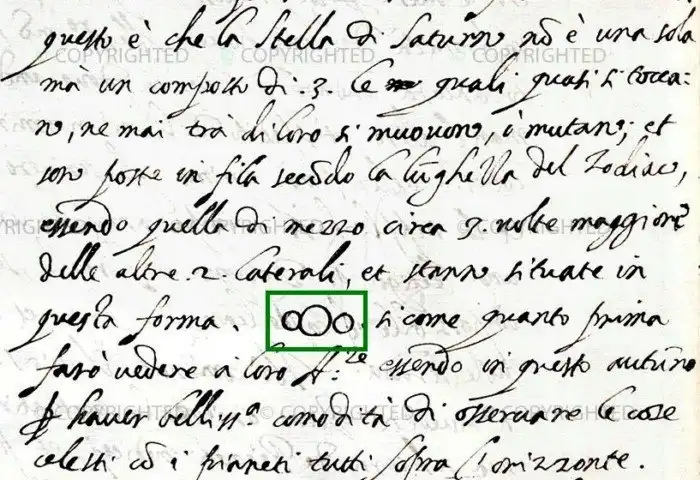 questo è che la stella di Saturno nō è una sola
ma un composto di .3. le quali quasi si tocca-
no, ne mai trà di loro si muovono, ò mutano; et
son poste in fila secōdo la lūghezza del Zodiaco,
essendo quella di mezzo circa 3. volte maggiore
delle altre .2. laterali, et stanno situate in
questa forma . si come quanto prima
farò vedere à loro A.ze essendo in questo autūno
haver belliss.a comodità di osservare le cose
celesti cō i pianeti tutti sopra l'orizzonte.